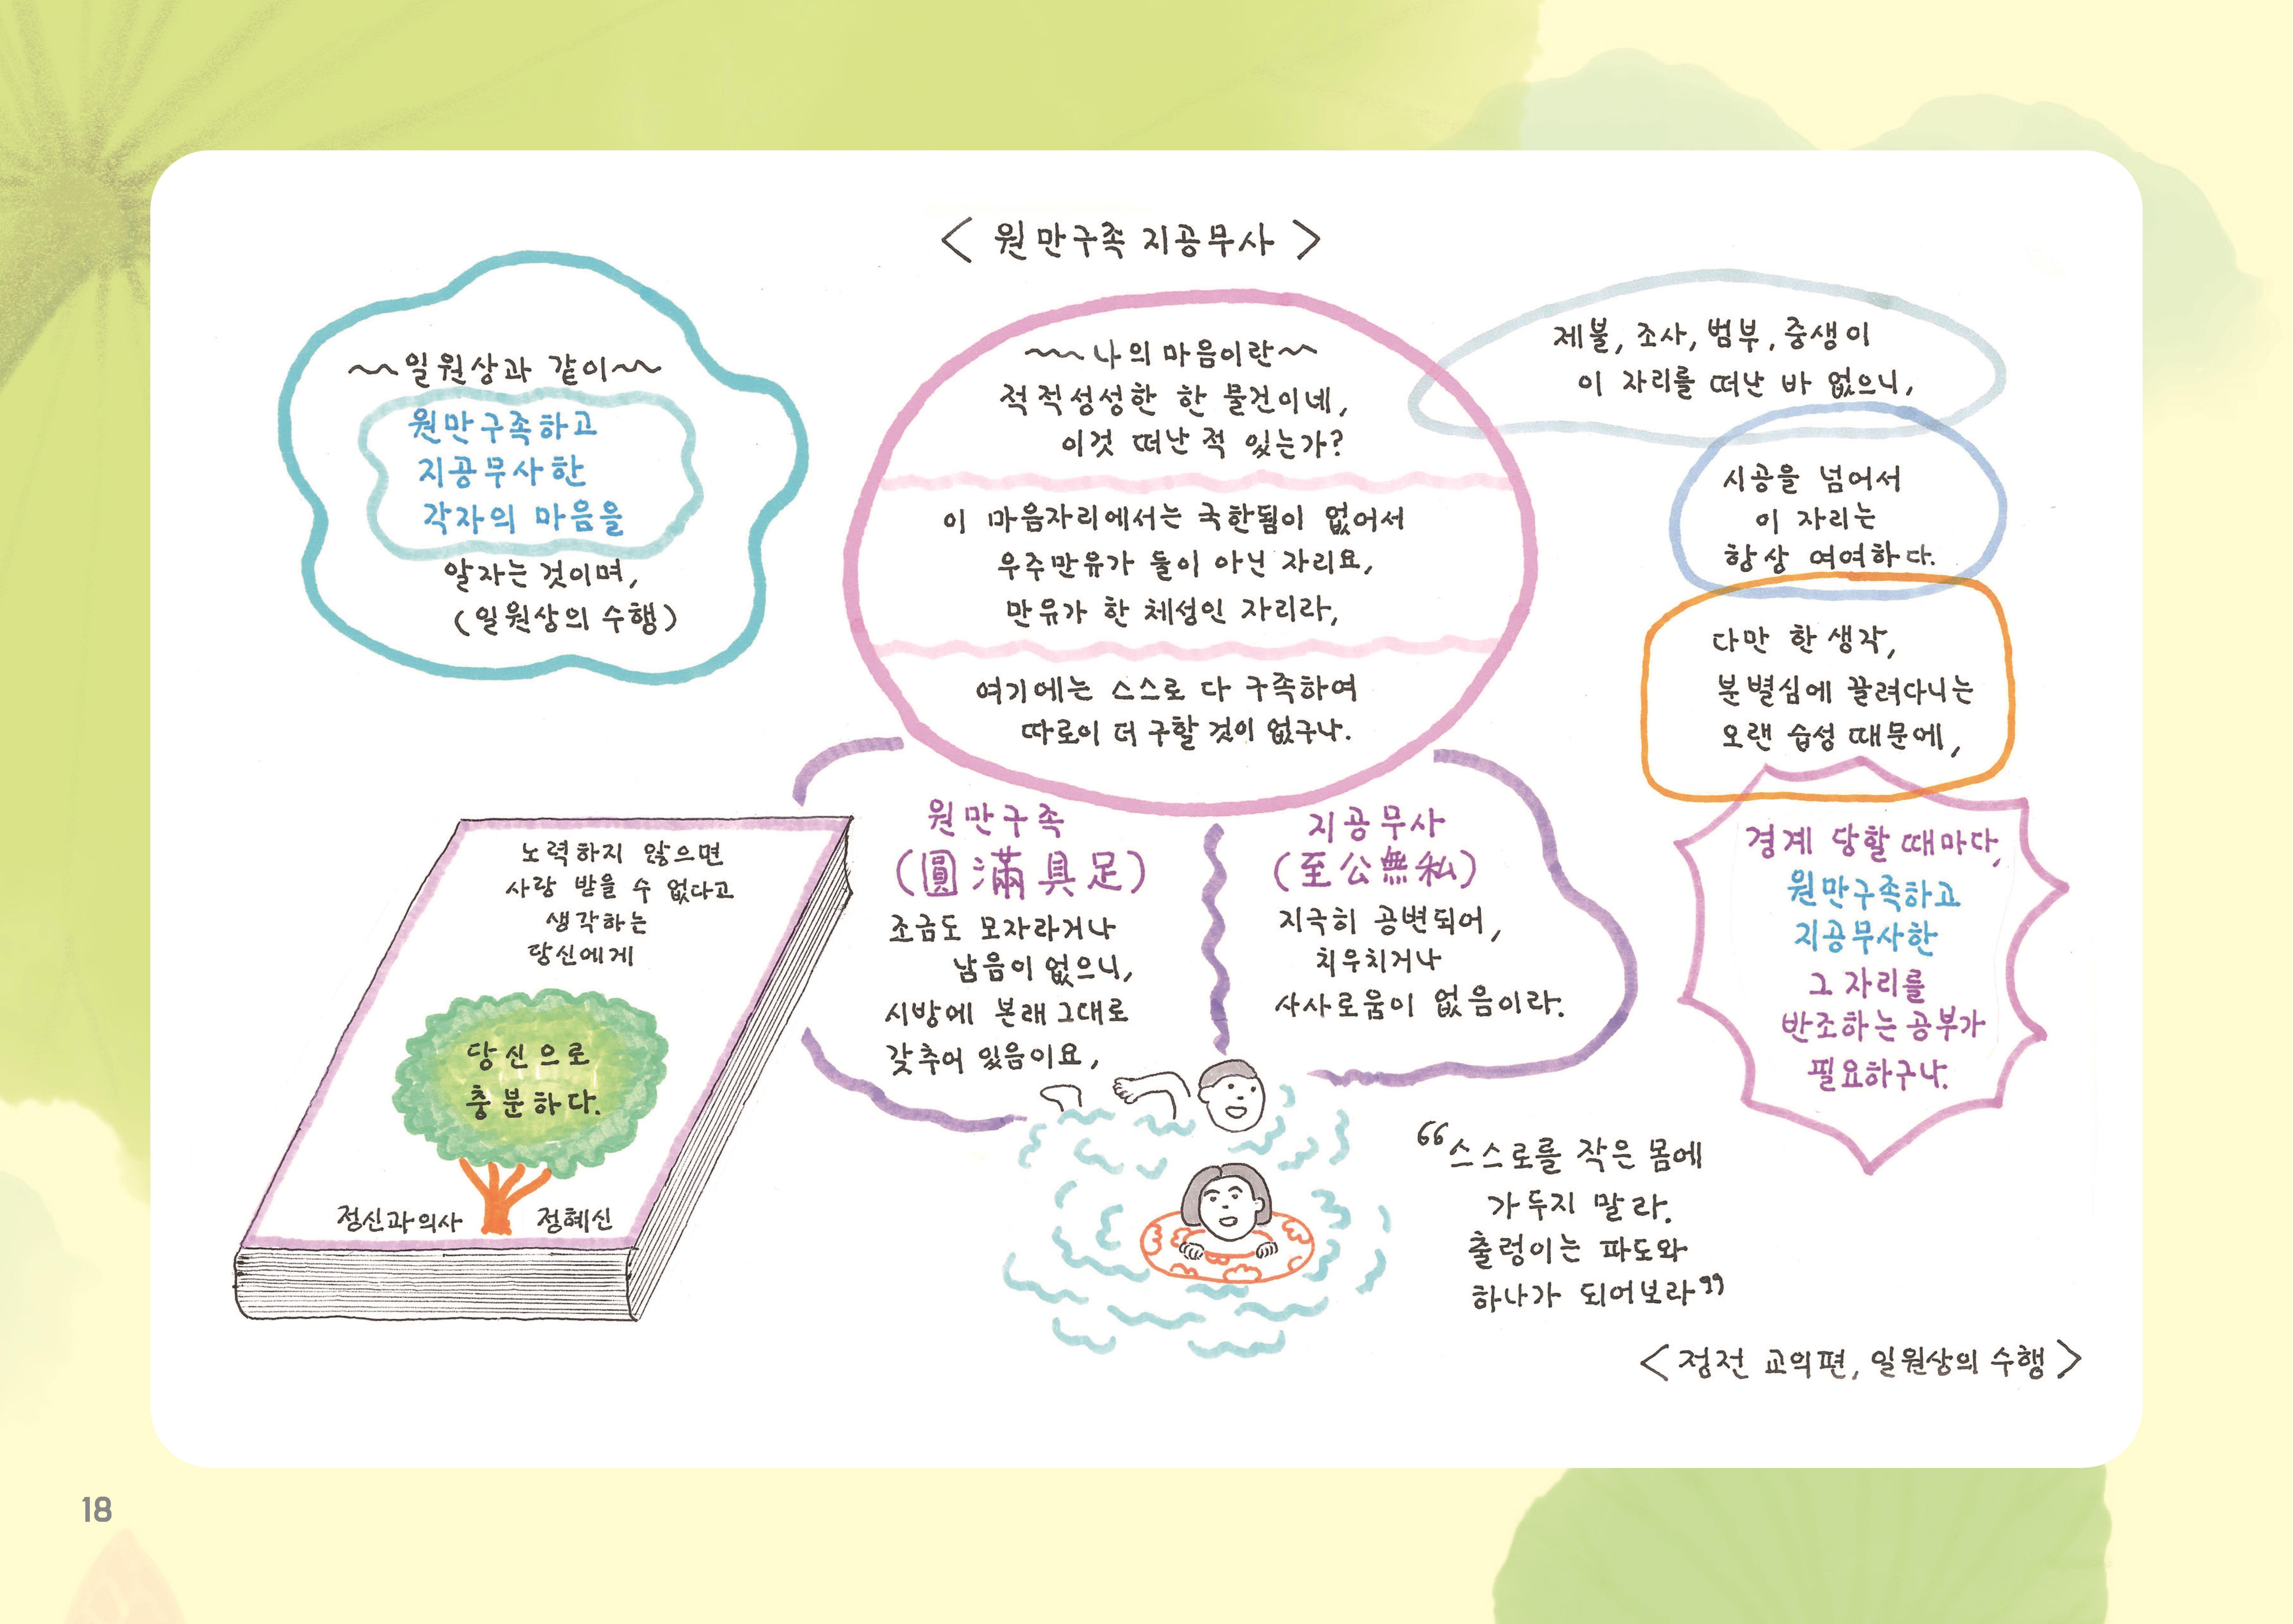 < 원만구족 지공무사 >
~~일원상과 같이~~
원만구족하고
지공무사한
각자의 마음을
알자는 것이며,
(일원상의 수행)
~~나의 마음이란~
적적성성한 한 물건이네,
이것 떠난 적 있는가?
이 마음자리에서는 국한됨이 없어서
우주만유가 둘이 아닌 자리요,
만유가 한 체성인 자리라,
여기에는 스스로 다 구족하여
따로이 더 구할 것이 없구나.
제불, 조사, 범부, 중생이
이 자리를 떠난 바 없으니,
시공을 넘어서
이 자리는
항상 여여하다.
다만 한 생각,
분별심에 끌려다니는
오랜 습성 때문에,
경계 당할 때마다,
원만구족하고
지공무사한
그 자리를
반조하는 공부가
필요하구나.
원만구족
(圓滿具足)
조금도 모자라거나
남음이 없으니,
시방에 본래 그대로
갖추어 있음이요,
지공무사
(至公無私)
지극히 공변되어,
치우치거나
사사로움이 없음이라.
노력하지 않으면
사랑 받을 수 없다고
생각하는
당신에게
당신으로
충분하다.
정신과의사 정혜신
“스스로를 작은 몸에
가두지 말라.
출렁이는 파도와
하나가 되어보라”
< 정전 교의편, 일원상의 수행 >
18